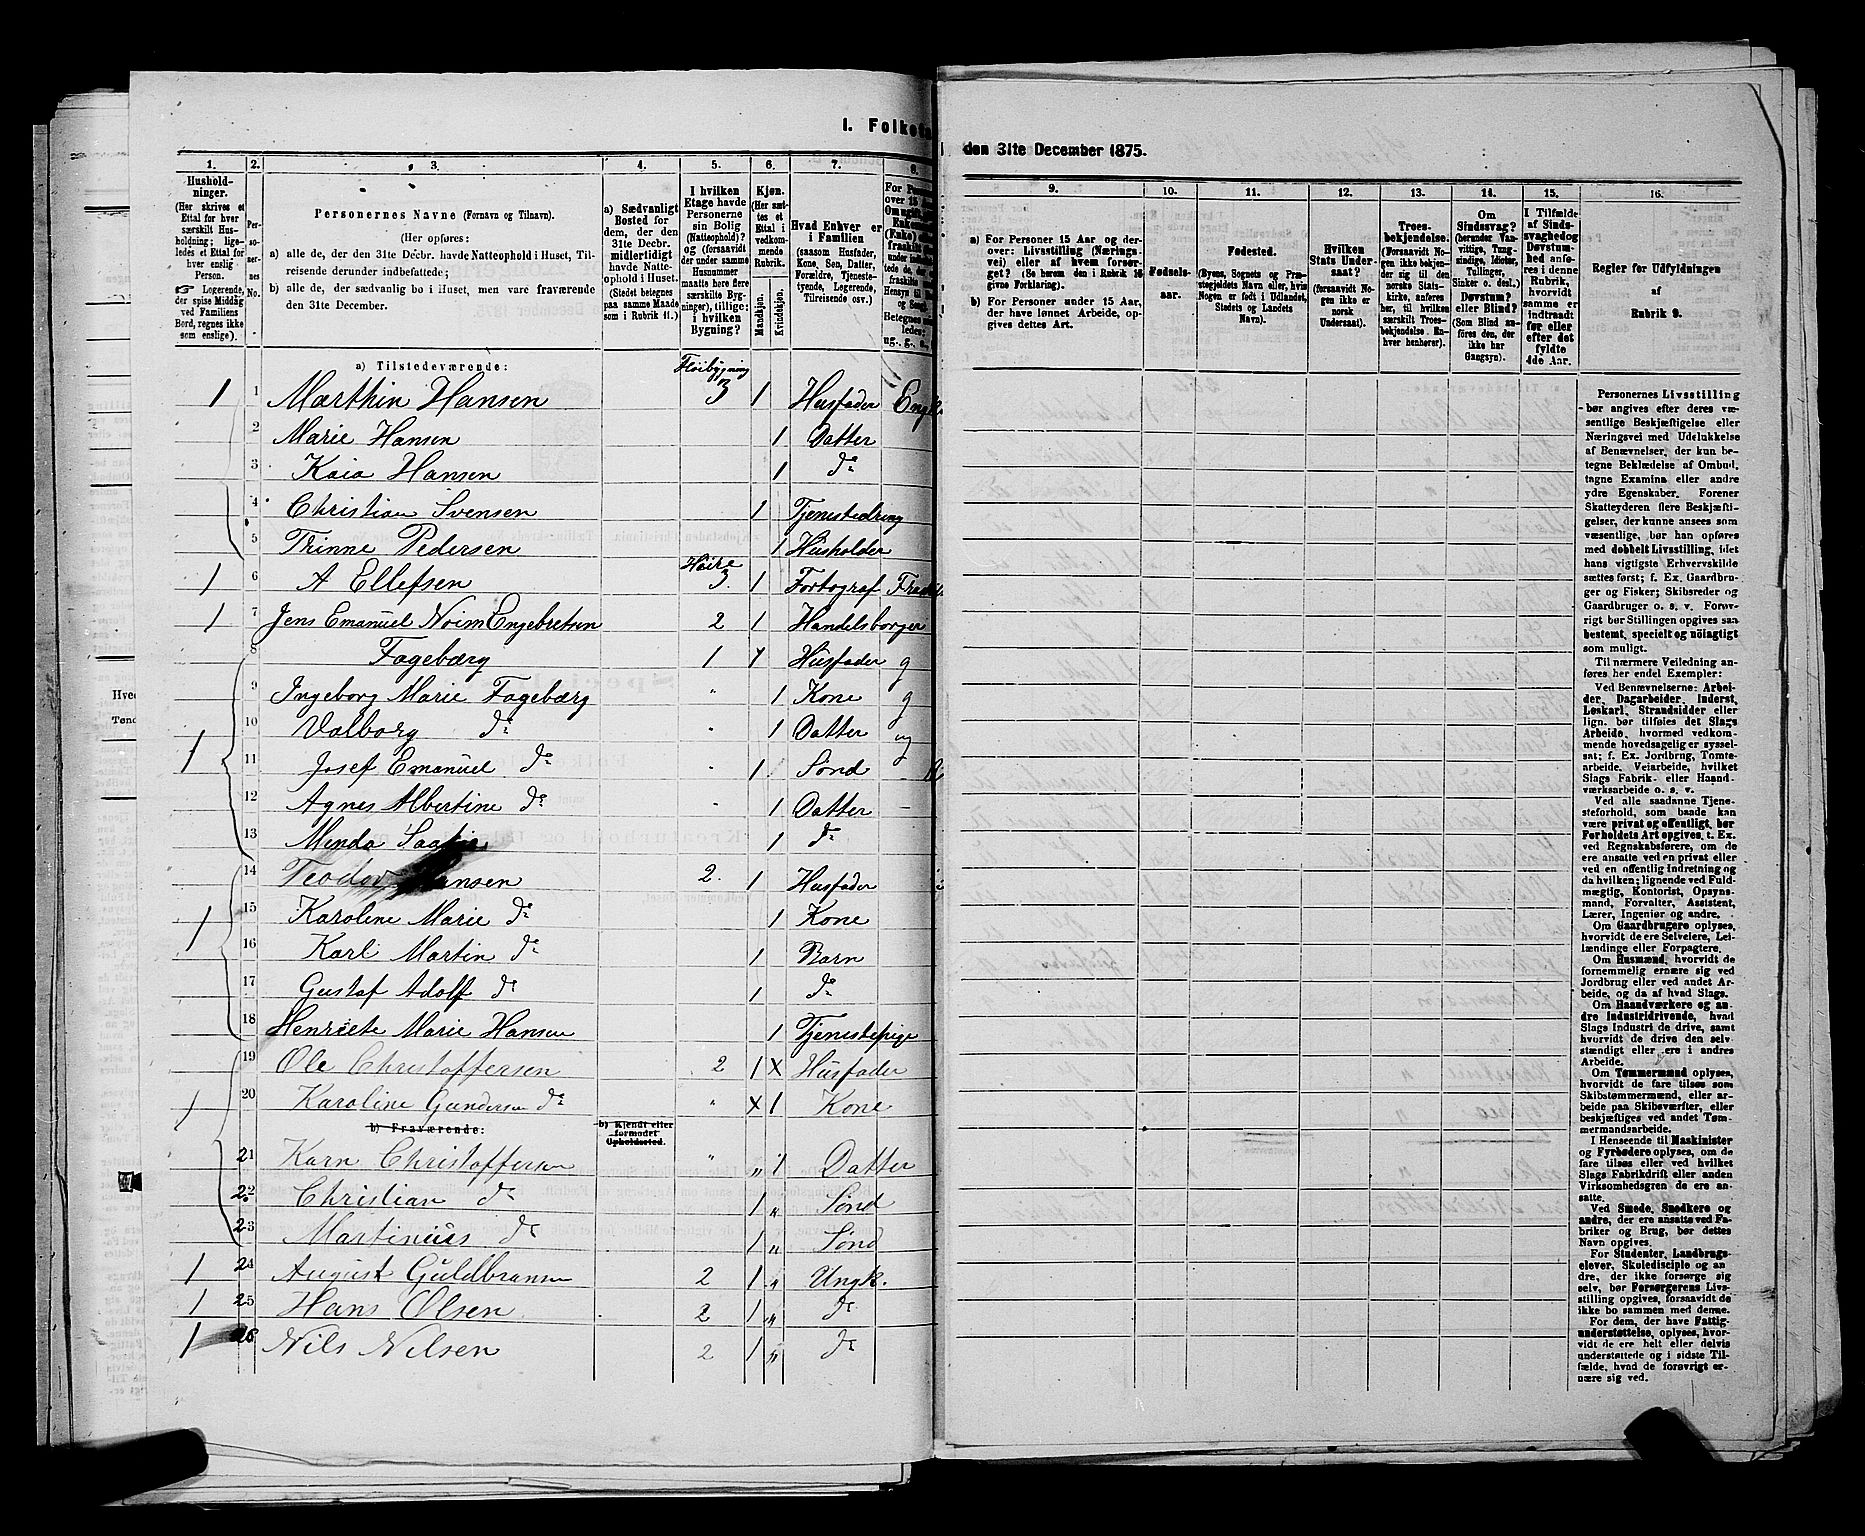 I. Folket
den 31te December 1875.
1. 2. 3. 4. 5. 6. 7. 8.
9. 10. 11. 12. 13. 14. 15. 16.
Hushold-
ninger.
(Her skrives et
Ettal for hver
særskilt Hus-
holdning; lige-
ledes et Ettal for
hver enslig
Person.
☞ Logerende,
der spise Middag
ved Familiens
Bord, regnes ikke
som enslige).
Per-
so-
ner-
nes
No.
Personernes Navne (Fornavn og Tilnavn).
(Her opføres:
a) alle de, der den 31te Decbr. havde Natteophold i Huset, Til-
reisende derunder indbefattede;
b) alle de, der sædvanlig bo i Huset, men vare fraværende
den 31te December.
a) Sædvanligt
Bosted for
dem, der den
31te Decbr.
midlertidigt
havde Natte-
ophold i Huset.
(Stedet betegnes
paa samme Maade
som i Rubrik 11.)
I hvilken
Etage havde
Personerne
sin Bolig
(Natteophold)?
og (forsaavidt
der under samme
Husnummer
maatte høre flere
særskilte Byg-
ninger), tillige:
i hvilken
Bygning?
Kjøn.
(Her sæt-
tes et
Ettal i
vedkom-
mende
Rubrik.
Mandkjøn.
Kvindekjøn.
Hvad Enhver er
i Familien
(saasom Husfader,
Kone, Søn, Datter,
Forældre, Tjeneste-
tyende, Logerende,
Tilreisende osv.)
ug., g., e.,
a) For Personer 15 Aar og der-
over: Livsstilling (Nærings-
vei) eller af hvem forsør-
get? (Se herom den i Rubrik 16
givne Forklaring).
b) For Personer under 15 Aar,
der have lønnet Arbeide, op-
gives dettes Art.
Fødsels-
aar.
Fødested.
(Byens, Sognets og Præ-
stegjeldets Navn eller, hvis
Nogen er født i Udlandet,
Stedets og Landets
Navn).
Hvilken
Stats Under-
saat?
(forsaavidt No-
gen ikke er
norsk
Undersaat).
Troes-
bekjendelse.
(Forsaavidt No-
gen ikke bekjen-
der sig til den
norske Stats-
kirke, anføres
her, til hvilken
særskilt Troes-
bekjendelse En-
hver henhører).
Om
Sindssvag?
(herunder Van-
vittige, Tung-
sindige, Idioter,
Tullinger,
Sinker o. desl.)
Døvstum?
eller Blind?
(Som Blind an-
føres den, der
ikke har
Gangsyn).
I Tilfælde
af Sinds-
svaghed og
Døvstum-
hed anfø-
res i denne
Rubrik,
hvorvidt
samme er
indtraadt
før eller
efter det
fyldte
4de Aar.
Regler for Udfyldningen
af
Rubrik 9.
a) Tilstedeværende: Fløibygning
1 1 Marthin Hansen 3 1 Husfader
2 Marie Hansen 1 Datter
3 Kaia Hansen 1 do
4 Christian Svensen 1 Tjenestedreng
5 Trinne Pedersen 1 Husholder
Høire
1 6 A Ellefsen 3. 1 Fortograf
1 7 Jens Emanuel Noim Engebretsen 2 1 Handelsborger
8 Fagebærg 1 1 Husfader g
9 Ingeborg Marie Fagebærg " 1 Kone g
10 Valborg do " 1 Datter ug
1 11 Josef Emanuel do " 1 Sønd
12 Agnes Albertine do " 1 Datter –
13 Menda 1 do
14 Teodor Hansen 2. 1 Husfader
1 15 Karoline Marie do 1 Kone
16 Karl Martin do 1 Barn
17 Gustaf Adolf do 1 do
18 Henriete Marie Hansen 1 Tjenestepige
19 Ole Christoffersen 2 1 X Husfader
1 20 Karoline Gundersen do " X 1 Kone
b) Fraværende: b) Kjendt eller
formodet
Opholdssted.
21 Karn Christoffersen " " 1 Datter
22 Christian do 1 " Sønd
23 Martinius do 1 " Sønd
1 24 August Guldbransen 2 1 " Ungk.
1 25 Hans Olsen 2 1 " do
1 26 Nils Nilsen 2 1 " do
Personernes Livsstilling
bør angives efter deres væ-
sentlige Beskjæftigelse eller
Næringsvei med Udelukkelse
af Benævnelser, der kun be-
tegne Beklædelse af Ombud,
tagne Examina eller andre
ydre Egenskaber. Forener
Skatteyderen flere Beskjæfti-
gelser, der kunne ansees som
væsentlige, bør han opføres
med dobbelt Livsstilling, idet
hans vigtigste Erhvervskilde
sættes først; f. Ex. Gaardbru-
ger og Fisker; Skibsreder og
Gaardbruger o. s. v. Forøv-
rigt bør Stillingen opgives saa
bestemt, specielt og nöiagtigt
som muligt.
Til nærmere Veiledning an-
føres her endel Exempler:
Ved Benævnelserne: Arbei-
der, Dagarbeider, Inderst,
Løskarl, Strandsidder eller
lign. bør tilføies det Slags
Arbeide, hvormed vedkom-
mende hovedsagelig er syssel-
sat; f. Ex. Jordbrug, Tomte-
arbeide, Veiarbeide, hvilket
Slags Fabrik- eller Haand-
værksarbeide o. s. v.
Ved alle saadanne Tjene-
steforhold, som baade kan
være privat og offentligt, bør
Forholdets Art opgives, t. Ex.
ved Regnskabsførere, om de
ere ansatte ved en privat eller
ved en offentlig indretning og
da hvilken; lignende ved Fuld-
mægtig, Kontorist, Opsyns-
mand, Forvalter, Assistent,
Lærer, Ingeniør og andre.
Om Gaardbrugere oplyses,
hvorvidt de ere Selveiere, Lei-
lændinge eller Forpagtere.
Om Husmænd, hvorvidt de
fornemmelig ernære sig ved
Jordbrug eller ved andet Ar-
beide, og da af hvad Slags.
Om Haandværkere og an-
dre Industridrivende, hvad
Slags Industri de drive, samt
hvorvidt de drive den selv-
stændigt eller ere i andres
Arbeide.
Om Tømmermænd oplyses,
hvorvidt de fare tilsøs som
Skibstømmermænd, eller ar-
beide paa Skibsværfter, eller
beskjæftiges ved andet Tøm-
mermandsarbeide.
I Henseende til Maskinister
og Fyrbødere oplyses, om de
fare tilsøs eller ved hvilket
Slags Fabrikdrift eller anden
Virksomhedsgren de ere an-
satte.
Ved Smede, Snedkere og
andre, der ere ansatte ved Fa-
briker og Brug, bør dettes
Navn opgives.
For Studenter, Landbrugs-
elever, Skoledisciple og an-
dre, der ikke forsørge sig
selv, bør Forsørgerens Livs-
stilling opgives, forsaavidt de
ikke bo sammen med denne.
For dem, der have Fattig-
understøttelse, oplyses, hvor-
vidt de ere helt eller delvis
understøttede og i sidste Til-
fælde, hvad de forøvrigt er-
nære sig ved.